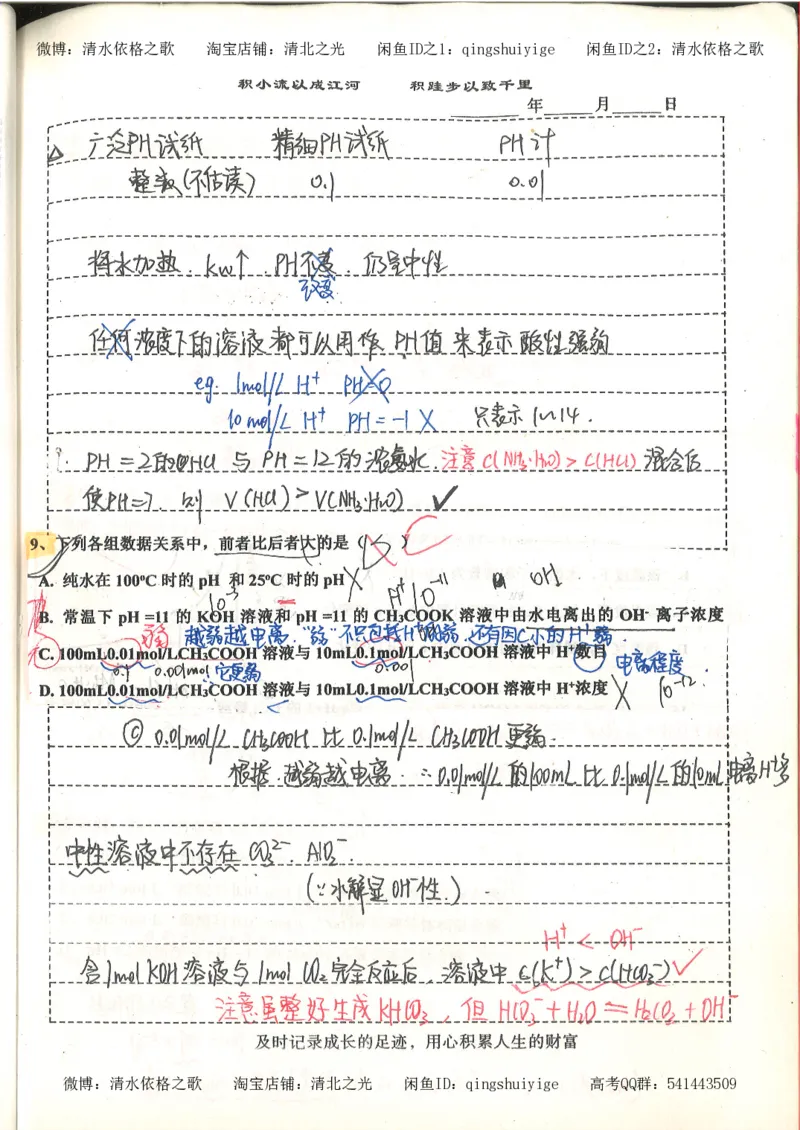 微博：清水依格之歌 淘宝店铺：清北之光 闲鱼ID之1：qingshuiyige 闲鱼ID之2：清水依格之歌
积小流以成江河 积跬步以致千里
年 月 日
△ 广泛PH试纸 精细PH试纸 PH计
整数(不估读) 0.1 0.01
将水加热，Kw↑，PH不变，仍呈中性
改变
任何浓度下的溶液都可以用作PH值来表示酸性强弱
eg. 1mol/L H⁺ PH=0
10 mol/L H⁺ PH=-1 X 只表示1~14.
?. PH=2的HCl与PH=12的浓氨水，注意C(NH₃·H₂O)>C(HCl) 混合后
使PH=7，则 V(HCl)>V(NH₃·H₂O) ✓
9、下列各组数据关系中，前者比后者大的是（ ） C
A. 纯水在 100ºC 时的 pH 和 25ºC 时的 pH X
H⁺ 10⁻¹¹ OH
10⁻³
B. 常温下 pH =11 的 KOH 溶液和 pH =11 的 CH₃COOK 溶液中由水电离出的 OH⁻ 离子浓度
越弱越电离，"弱"不只包括H⁺的弱，还有因C小的H⁺弱.
C. 100mL0.01mol/LCH₃COOH 溶液与 10mL0.1mol/LCH₃COOH 溶液中 H⁺数目 电离程度
0.1 0.001mol 它更弱 0.001
D. 100mL0.01mol/LCH₃COOH 溶液与 10mL0.1mol/LCH₃COOH 溶液中 H⁺浓度 X 10⁻¹².
<
Ⓒ 0.01mol/L CH₃COOH 比 0.1mol/L CH₃COOH 更弱.
根据，越弱越电离. ∴0.01mol/L的100mL比0.1mol/L的10mL电离H⁺多
中性溶液中不存在 CO₃²⁻、AlO₂⁻.
(∵水解显OH⁻性.)
H⁺ < OH⁻
含1mol KOH溶液与1mol CO₂完全反应后，溶液中 c(K⁺)>c(HCO₃⁻) ✓
注意虽整好生成KHCO₃，但 HCO₃⁻+H₂O⇌H₂CO₃+OH⁻
及时记录成长的足迹，用心积累人生的财富
微博：清水依格之歌 淘宝店铺：清北之光 闲鱼ID：qingshuiyige 高考QQ群：541443509